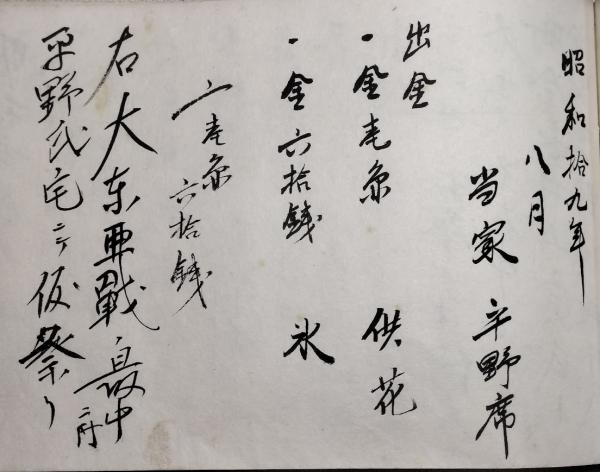 昭和拾九年
八月
当家 平野席
出金
一金壱円 供花
一金六拾銭 氷
〆壱円六拾銭
右大東亜戰最中ニ付
平野氏宅ニテ仮祭り